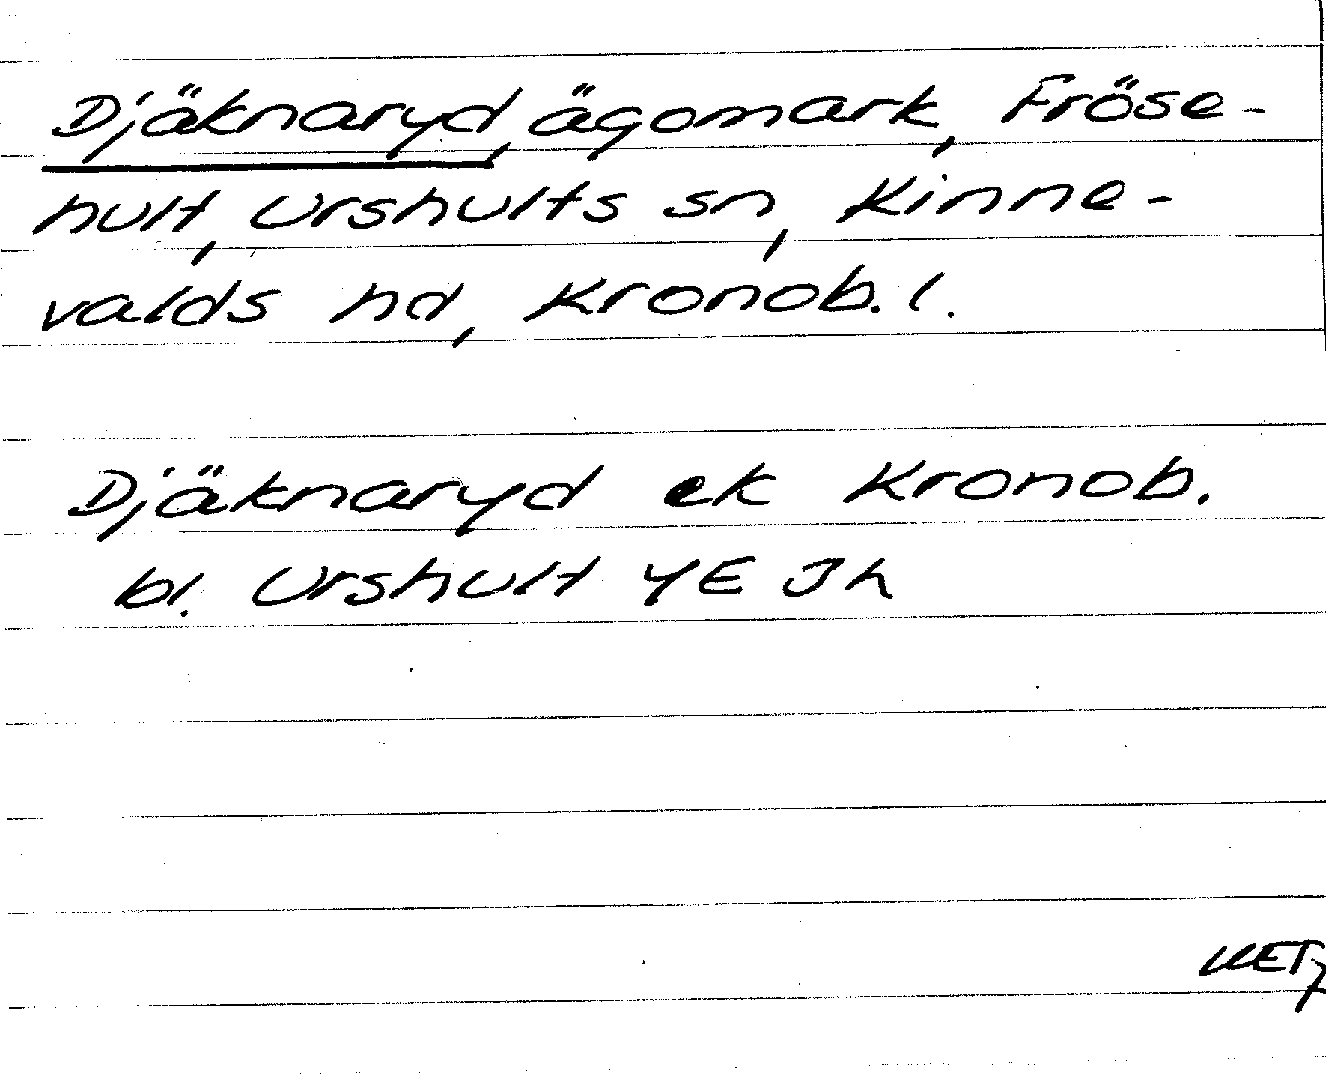 Djäknaryd, ägomark, Fröse-
hult, Urshults sn, Kinne-
valds hd, Kronob. l.
Djäknaryd ek Kronob.
bl. Urshult 4E Jh